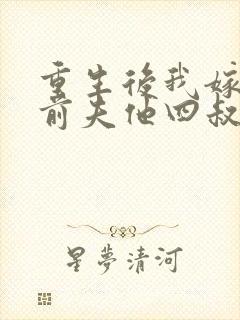 重生後我嫁
前夫他四叔
星夢清河